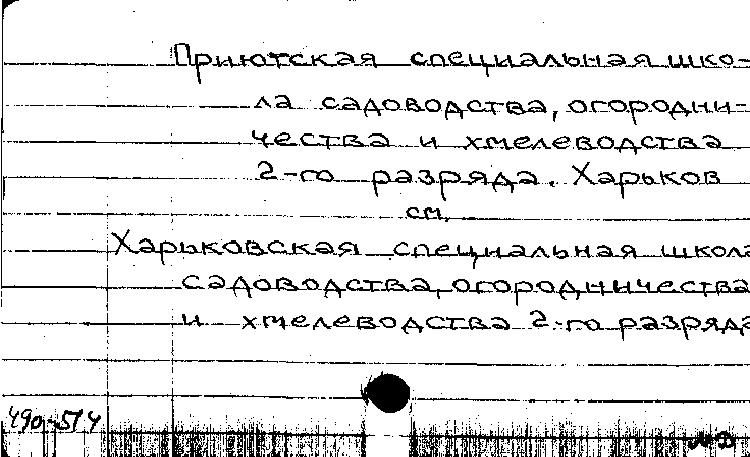 Приютская специальная шко-
ла садоводства, огородни-
чества и хмелеводства
2-го разряда. Харьков
см.
Харьковская специальная школа
садоводства, огородничества
и хмелеводства 2-го разряда
490-514